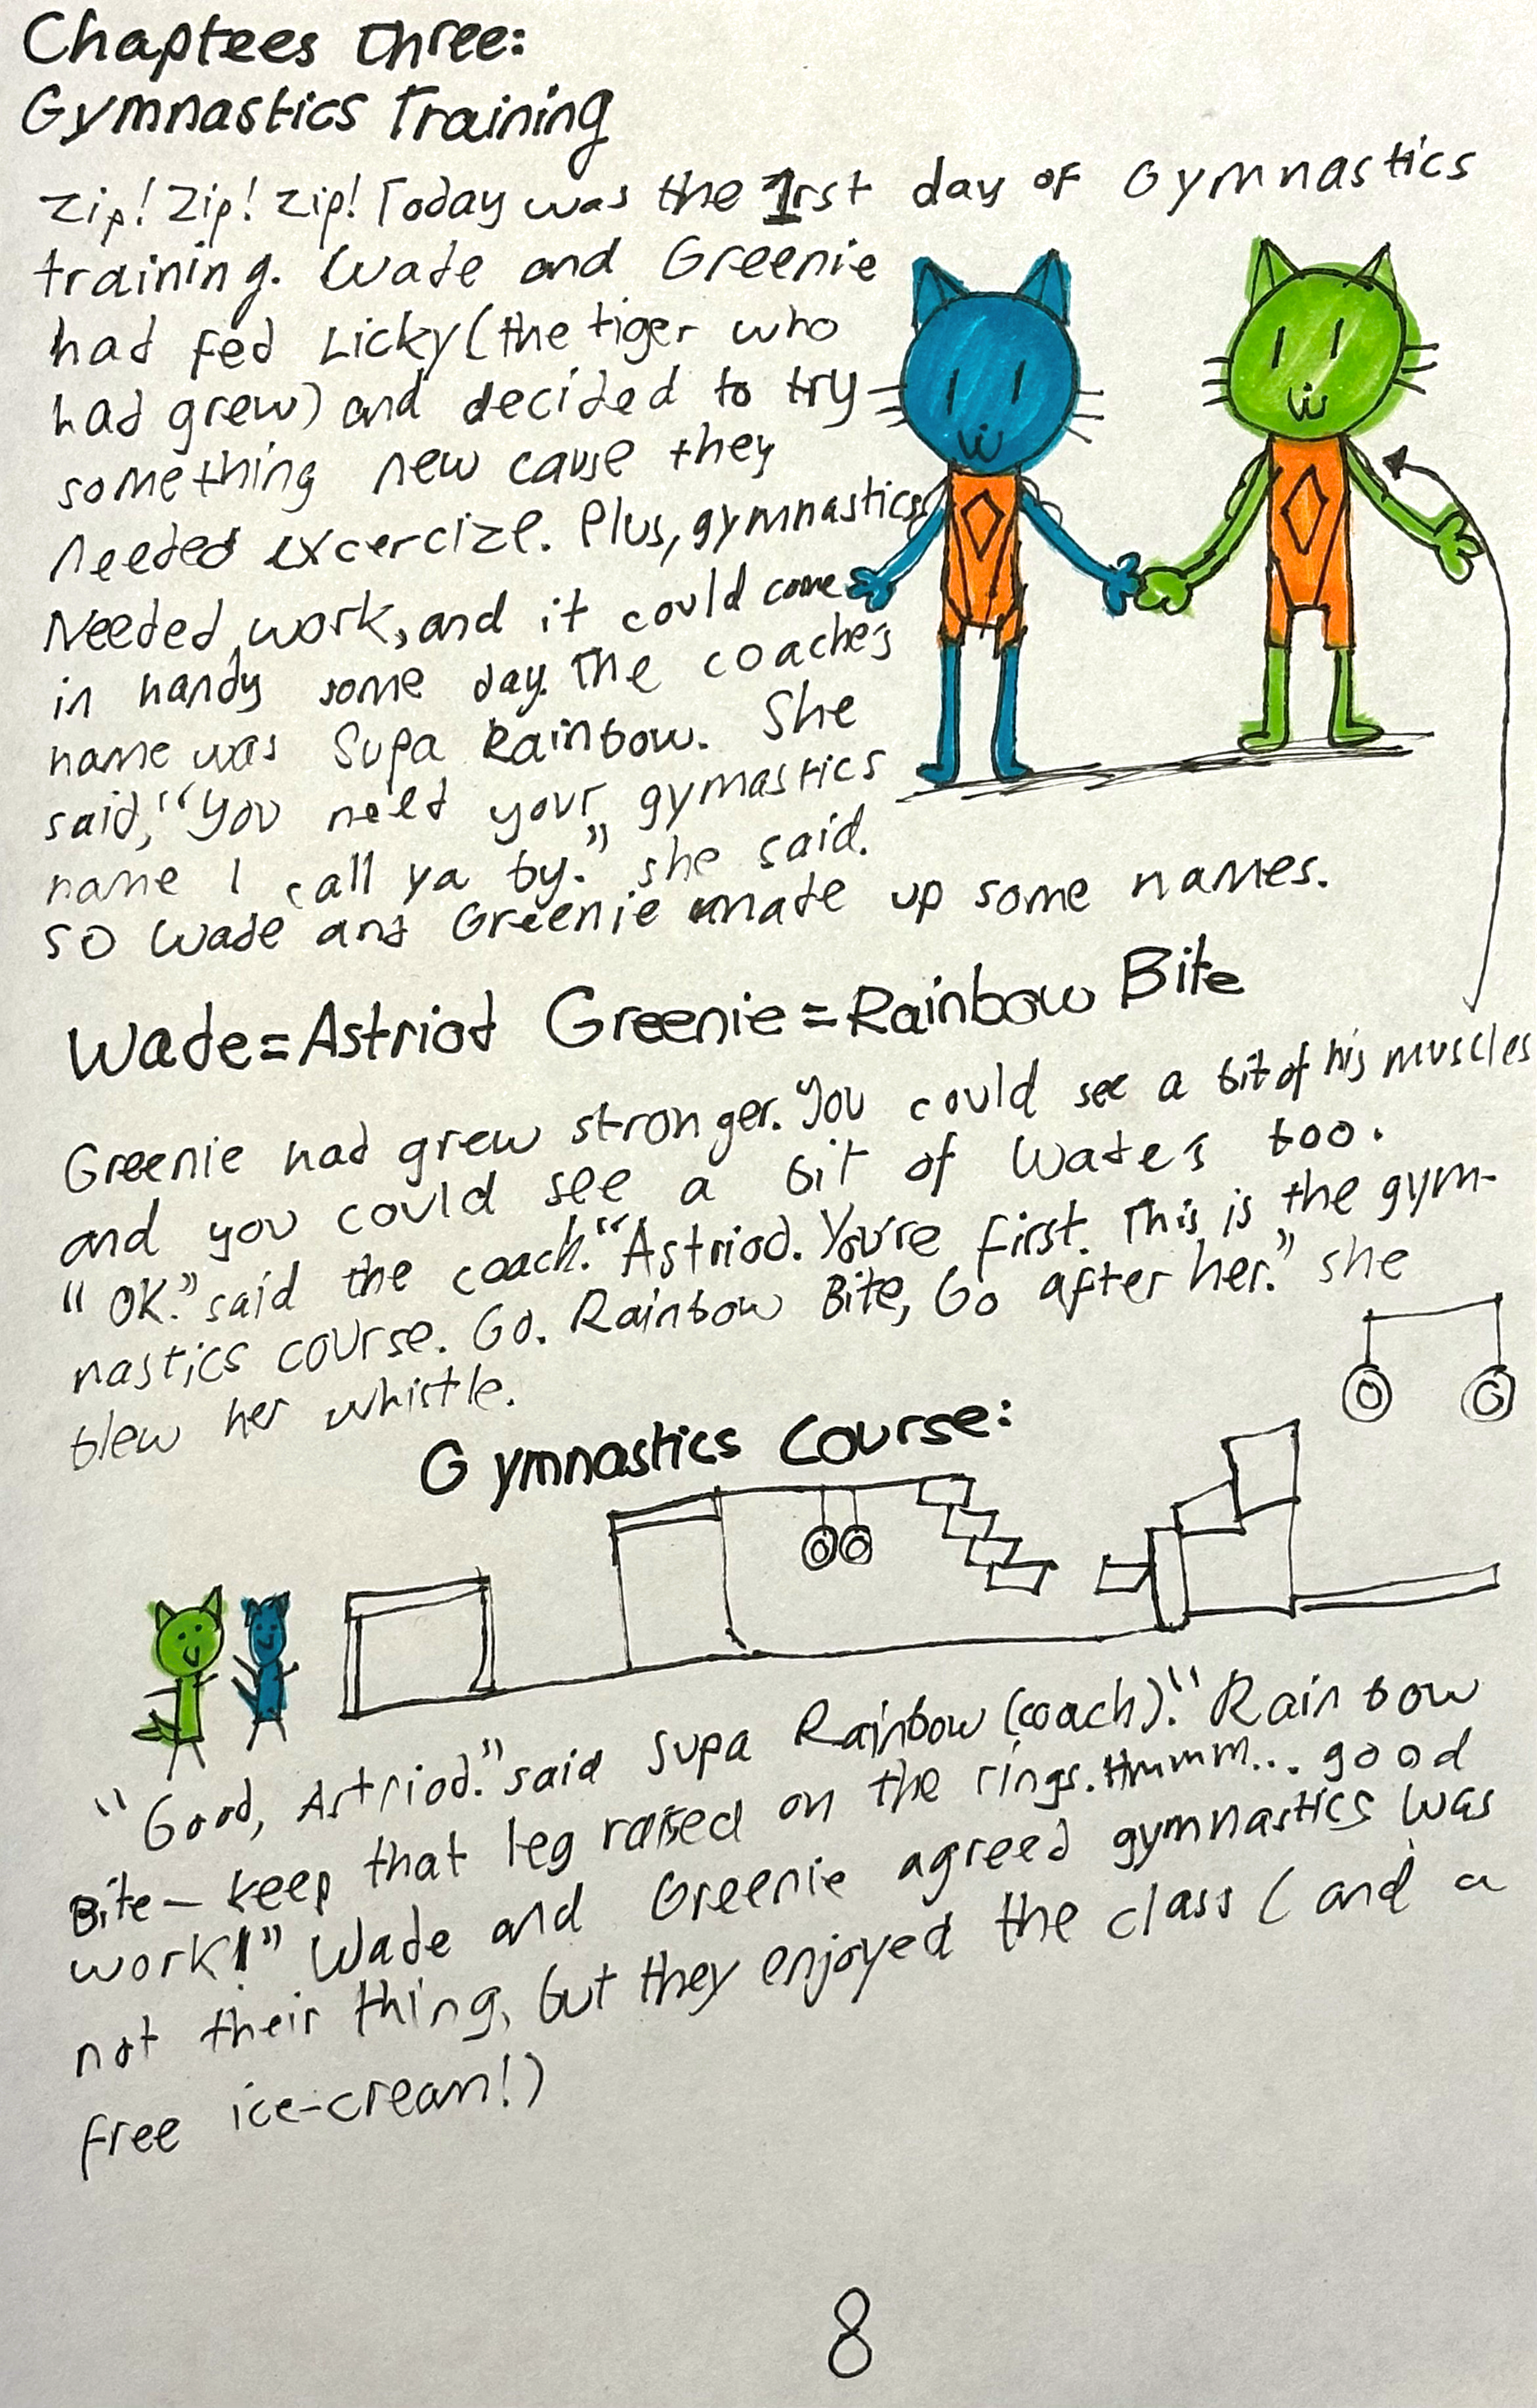 Chaptees Three:
Gymnastics Training
Zip! Zip! Zip! Today was the 1rst day of Gymnastics
training. Wade and Greenie
had fed Licky (the tiger who
had grew) and decided to try
something new cause they
Needed excercize. Plus, gymnastics
Needed work, and it could come
in handy some day. The coaches
name was Supa Rainbow. She
said, "You need your gymastics
name I call ya by." she said.
so Wade and Greenie made up some names.
Wade=Astriod Greenie=Rainbow Bite
Greenie had grew stronger. You could see a bit of his muscles
and you could see a bit of Wade's too.
"OK." said the coach. "Astriod. You're first. This is the gym-
nastics course. Go. Rainbow Bite, Go after her." she
blew her whistle.
Gymnastics Course:
"Good, Astriod." said Supa Rainbow (coach). "Rainbow
Bite— keep that leg raised on the rings. Hmmm... good
work!" Wade and Greenie agreed gymnastics was
not their thing, but they enjoyed the class (and a
free ice-cream!)
8